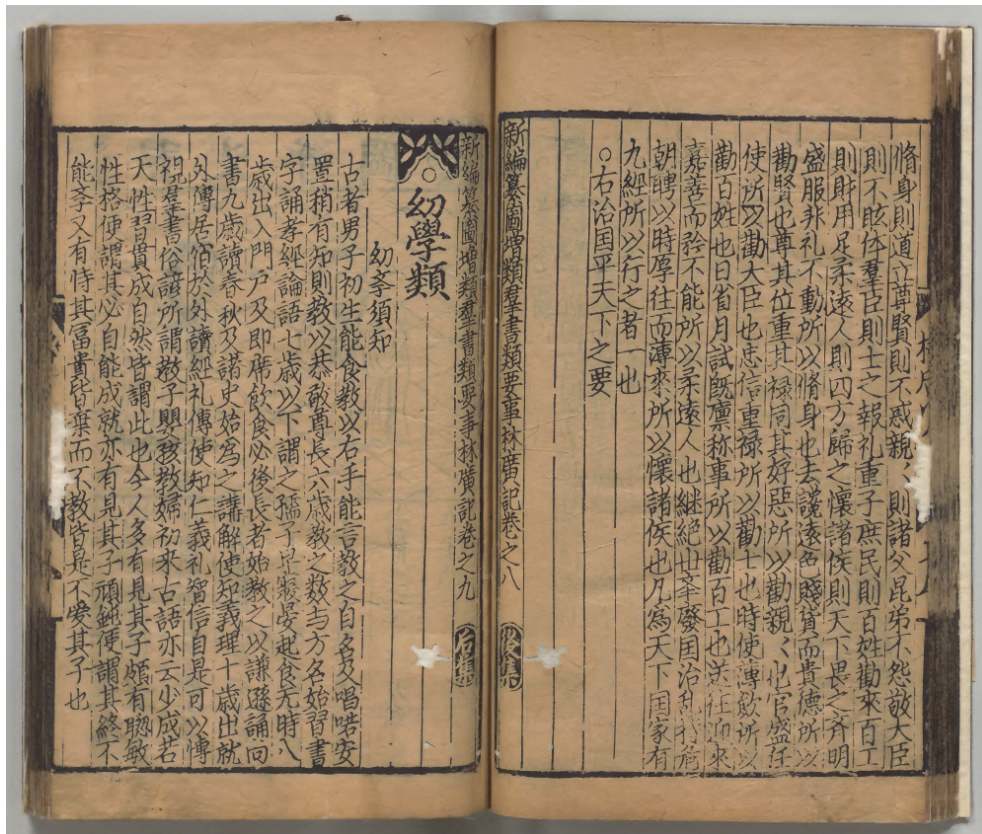 脩身則道立尊賢則不惑親〻則諸父昆弟不怨敬大臣
則不眩体羣臣則士之報礼重子庶民則百姓勸來百工
則財用足柔遠人則四方歸之懷諸侯則天下畏之斉明
盛服非礼不動所以脩身也去讒遠色賤貨而貴德所以
勸賢也尊其位重其禄同其好惡所以勸親〻也官盛任
使所以勸大臣也忠信重禄所以勸士也時使薄斂所以
勸百姓也日省月試既禀称事所以勸百工也送往迎來
嘉善而矜不能所以柔遠人也継絶世举廢国治乱持危
朝聘以時厚往而薄來所以懷諸侯也凡爲天下国家有
九經所以行之者一也
○右治国平天下之要
新編纂圖增類羣書類要事林廣記卷之八 後集
新編纂圖增類羣書類要事林廣記卷之九 后集
○幼學類
幼斈須知
古者男子初生能食教以右手能言教之自名及唱喏安
置稍有知則教以恭敬尊長六歳教之数与方名始習書
字誦孝經論語七歳以下謂之孺子早寢晏起食无時八
歳出入門戸及即席飲食必後長者始教之以謙遜誦尚
書九歳讀春秋及諸史始爲之講解使知義理十歳出就
外傅居宿於外讀經礼傳使知仁義礼智信自是可以博
視羣書俗諺所謂教子嬰孩教婦初来古語亦云少成若
天性習貫成自然皆謂此也今人多有見其子頗有聰敏
性格便謂其必自能成就亦有見其子頑鈍便謂其終不
能斈又有恃其冨貴皆棄而不教皆是不愛其子也